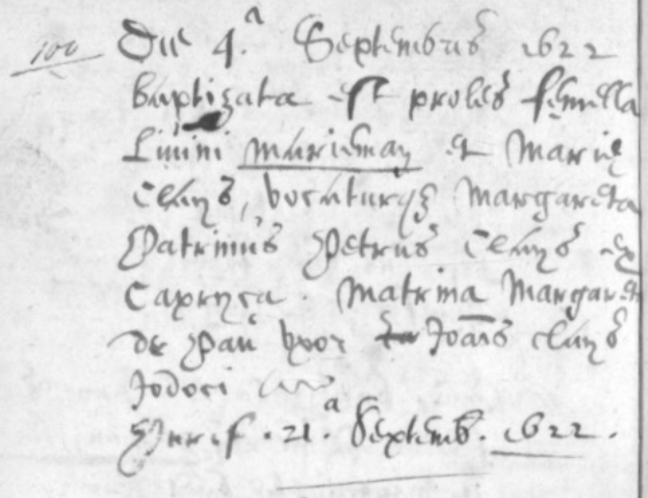 100 Die 4.a Septembris 1622
baptizata est proles femella
Livini Marieman et Marię
Clays, vocaturqȝ Margareta
Patrinus Petrus Clays ex
Capryca. Matrina Margareta
de Pau uxor Joānis Clays
Jodoci
21.a Septemb. 1622.